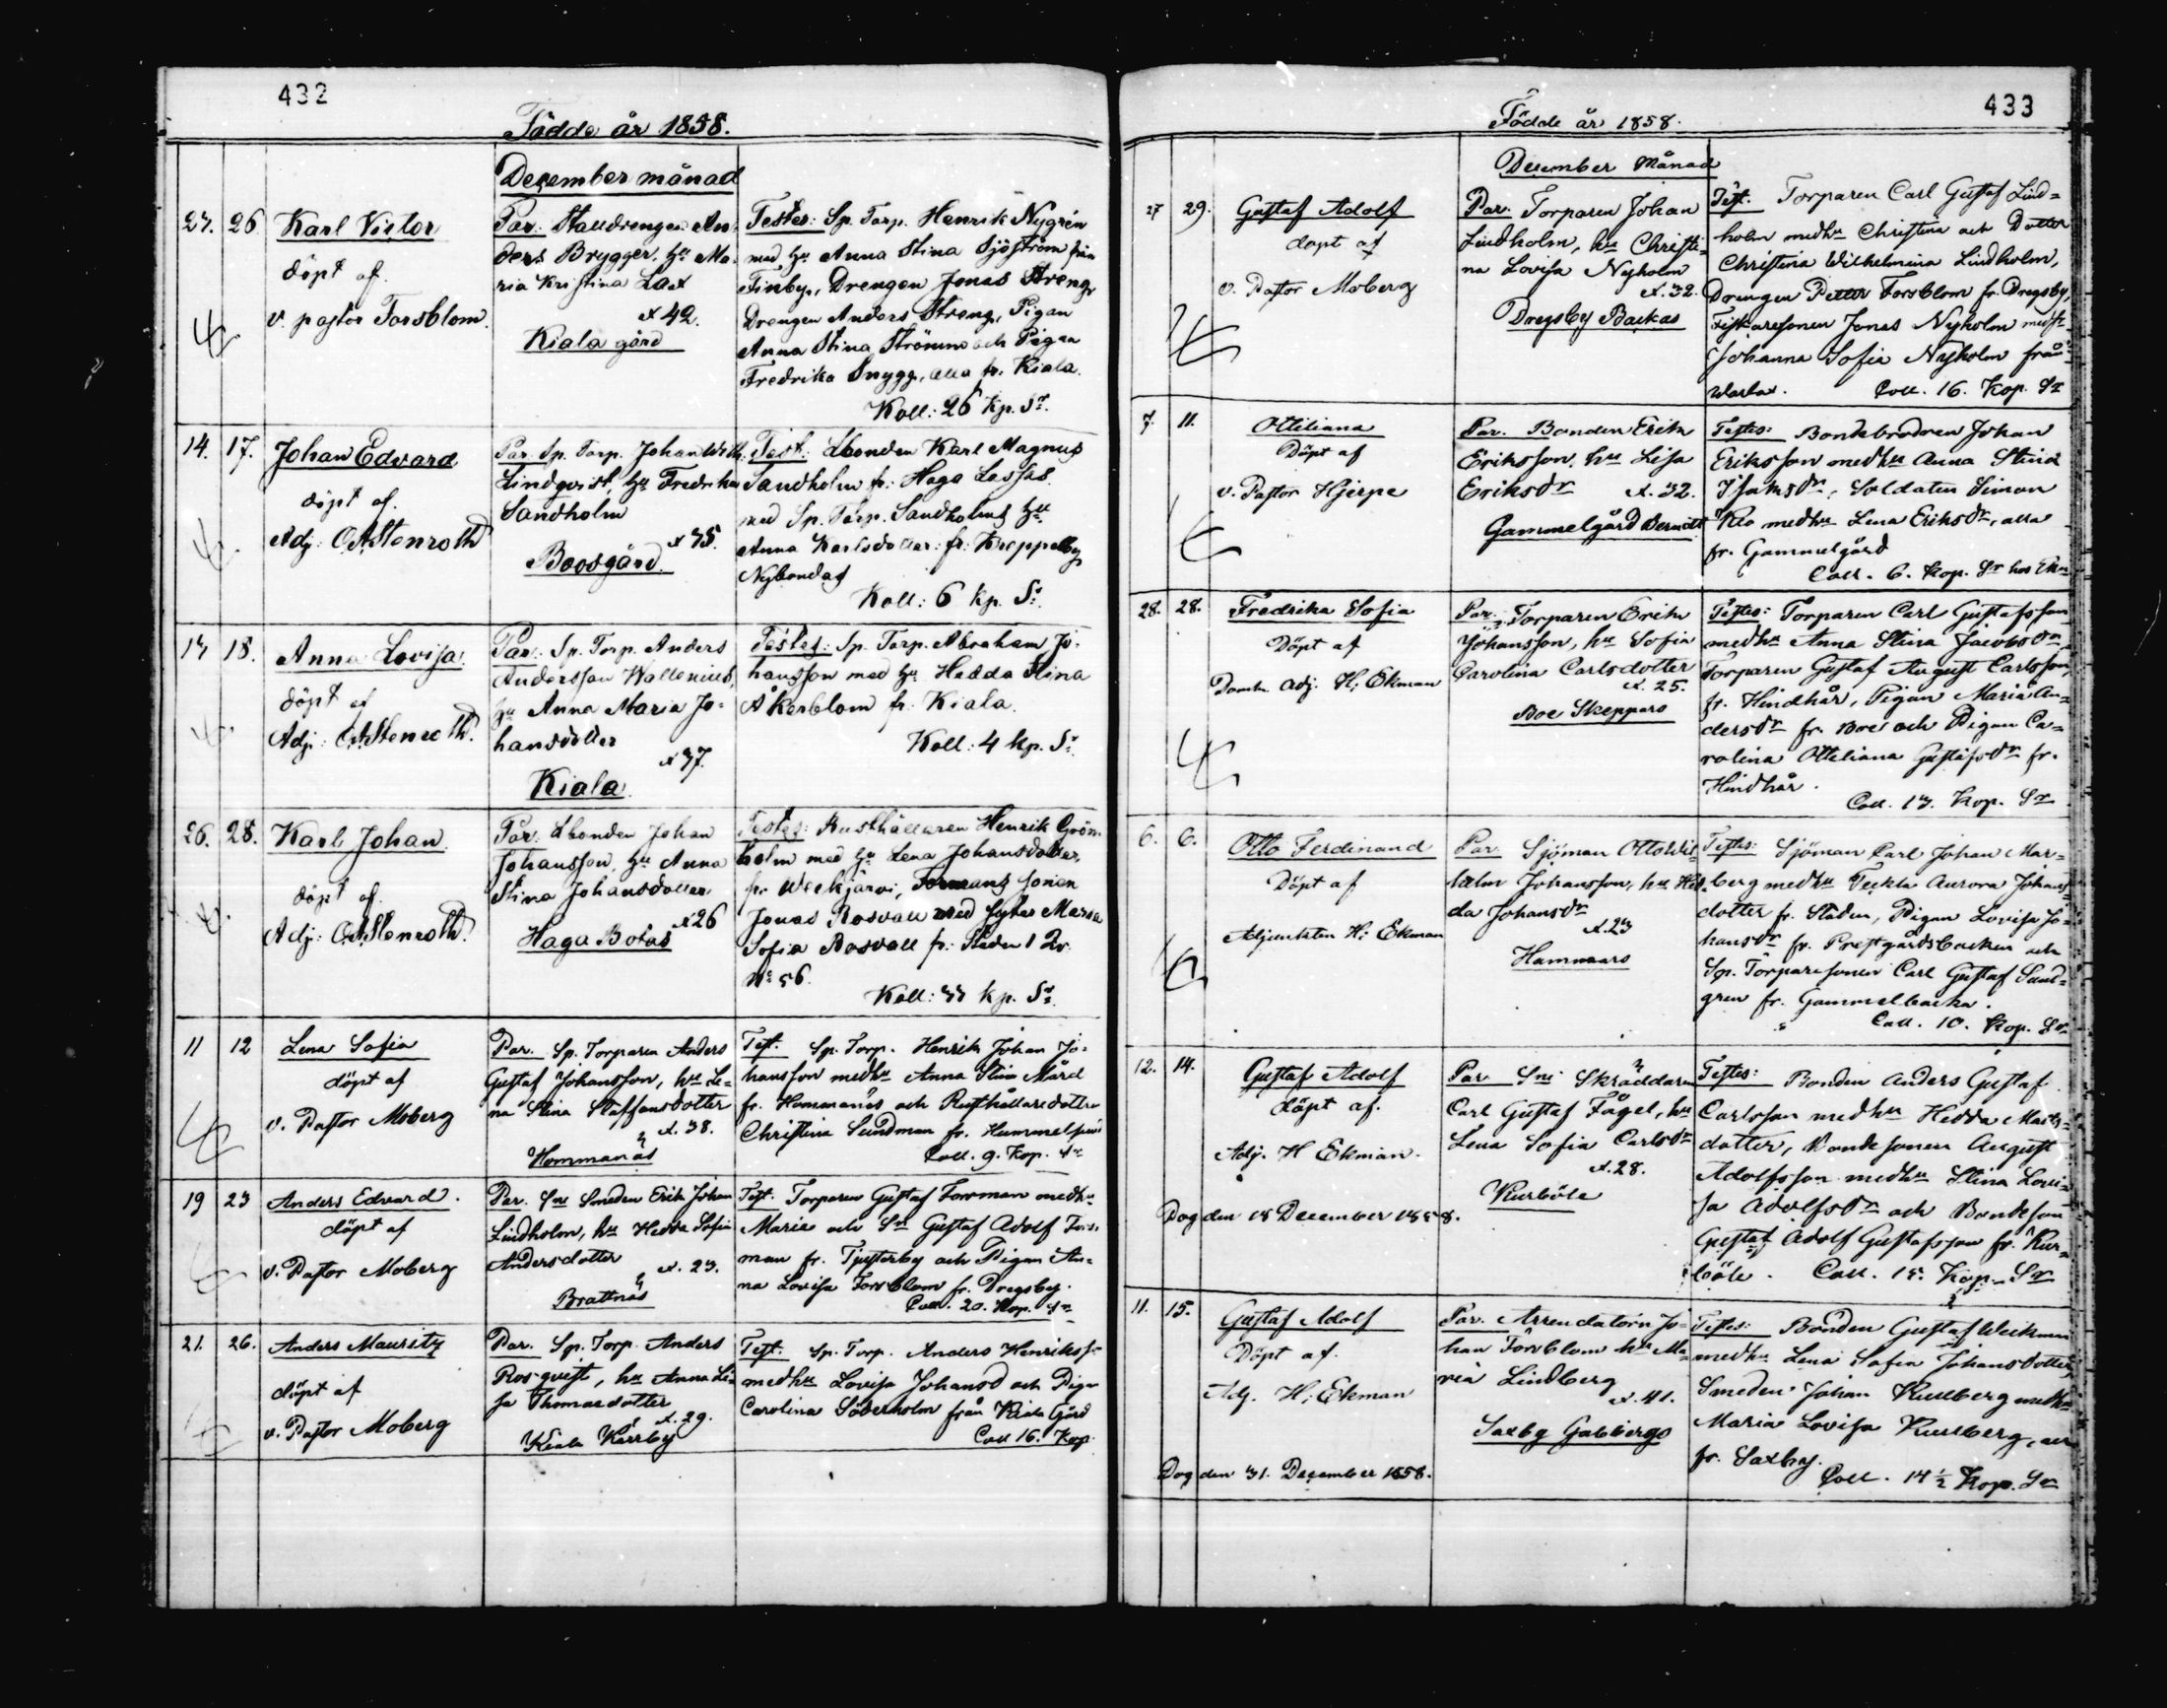 432
Födde år 1858.
December månad
23. 26 Karl Victor
döpt af
v. pastor Forsblom.
Par: Stalldrengen An-
ders Brygger, hu Ma-
ria Kristina Lax
æt 42.
Kiala gård
Testes: Sp. Torp. Henrik Nygrén
med hu Anna Stina Sjöström från
Finby, Drengen Jonas Streng,
Drengen Anders Streng, Pigan
Anna Stina Ström och Pigan
Fredrika Snygg, alla fr. Kiala.
Koll: 26 kp. Sr.
14. 17. Johan Edvard
döpt af
Adj: O.A. Stenroth
Par: Sp. Torp. Johan Wilh.
Lindqvist, hu Fredrika
Sandholm
æt 35.
Boosgård.
Test: Bonden Karl Magnus
Sandholm fr: Haga Lassas
med Sp. Torp. Sandholms hu
Anna Karlsdotter: fr: Kroppelby
Nybondas
Koll: 6 kp. Sr.
13 18. Anna Lovisa.
döpt af
Adj: O.A. Stenroth.
Par: Sp. Torp. Anders
Andersson Wallenius,
hu Anna Maria Jo-
hansdotter
æt 37.
Kiala.
Testes: Sp. Torp. Abraham Jo-
hansson med hu Hedda Stina
Åkerblom fr. Kiala.
Koll: 4 kp. Sr.
26. 28. Karl Johan
döpt af
Adj: O.A. Stenroth.
Par: Bonden Johan
Johansson, hu Anna
Stina Johansdotter
æt 26
Haga Botas
Testes: Rusthållaren Henrik Grön-
holm med hu Lena Johansdotter,
fr. Weckjärvi, Formans sonen
Jonas Rosvall med syster Maria
Sofia Rosvall fr: Staden 1 Qv.
No 56.
Koll: 33 kp. Sr.
11 12 Lena Sofia
döpt af
v. Pastor Moberg
Par. Sp. Torparen Anders
Gustaf Johansson, hu Le-
na Stina Staffansdotter
æt. 38.
Hommanäs
Test. Sp. Torp. Henrik Johan Jo-
hansson med hu Anna Stina Mård
fr. Hommanäs och Rusthållaredottren
Christina Sundman fr.
Coll. 9. Kop. Sr
19 23 Anders Edvard.
döpt af
v. Pastor Moberg
Par. Sne Smeden Erik Johan
Lindholm, hu Hedda Sofia
Andersdotter
æt. 23.
Brattnäs
Test. Torparen Gustaf Forsman med hu
Maria och Sn Gustaf Adolf Fors-
man fr. Tjusterby och Pigan An-
na Lovisa Forsblom fr. Dregsby.
Coll. 20. Kop. Sr
21. 26. Anders Mauritz
döpt af
v. Pastor Moberg
Par. Sp. Torp. Anders
Rosqvist, hu Anna Li-
sa Thomasdotter
æt. 29.
Kiala Kärrby
Test. Sp. Torp. Anders Henrikss
med hu Lovisa Johansd och Pigan
Carolina Söderholm från Kiala Gård
Coll 16. Kop
433
Födde år 1858.
December Månad
27 29. Gustaf Adolf
döpt af
v. Pastor Moberg
Par. Torparen Johan
Lindholm, hu Christi-
na Lovisa Nyholm
æt. 32.
Dregsby Backas
Test. Torparen Carl Gustaf Lind-
holm med hu Christina och Dotter
Christina Wilhelmina Lindholm,
Drengen Petter Forsblom fr. Dregsby,
Fiskaresonen Jonas Nyholm med
Johanna Sofia Nyholm från
Warlax. Coll. 16. Kop. Sr
7. 11. Ottiliana
Döpt af
v. Pastor Hjerpe
Par. Bonden Erik
Eriksson, hu Lisa
Eriksdr æt. 32.
Gammelgård Berndts
Testes: Bondebrodren Johan
Eriksson med hu Anna Stina
Isaksdr, Soldaten Simon
Klo med hu Lena Eriksdr, alla
fr. Gammelgård
Coll. 6. Kop. Sr hos Ekm
28. 28. Fredrika Sofia
Döpt af
Domk. Adj. H. Ekman
Par. Torparen Erik
Johansson, hu Sofia
Carolina Carlsdotter
æt. 25.
Boe Skeppars
Testes: Torparen Carl Gustafsson
med hu Anna Stina Jacobsdr,
Torparen Gustaf August Carlsson,
fr. Hindhår, Pigan Maria An-
dersdr fr. Boe och Pigan Ca-
rolina Ottiliana Gustafsdr fr.
Hindhår.
Coll. 13. Kop. Sr
6. 6. Otto Ferdinand
Döpt af
Adjunkten H. Ekman
Par. Sjöman Otto Wil-
helm Johansson, hu Hed-
da Johansdr
æt. 23
Hammars
Testes: Sjöman Carl Johan Mar-
berg med hu Teckla Aurora Johans-
dotter fr. Staden, Pigan Lovisa Jo-
hansdr fr. Prestgårdsbacken och
Sp. Torparesonen Carl Gustaf Sund-
gren fr. Gammelbacka.
Coll. 10. Kop. Sr
12. 14. Gustaf Adolf
döpt af.
Adj. H Ekman.
Dog den 18 December 1858.
Par Sne Skräddaren
Carl Gustaf Fågel, hu
Lena Sofia Carlsdr
æt. 28.
Kurböle
Testes: Bonden Anders Gustaf
Carlsson med hu Hedda Mats-
dotter, Bondesonen August
Adolfsson med hu Stina Lovi-
sa Adolfsdr och Bondeson
Gustaf Adolf Gustafsson fr. Kur-
böle. Coll. 15. Kop. Sr
11. 15. Gustaf Adolf
Döpt af.
Adj. H. Ekman
Dog den 31. December 1858.
Par. Arrendatorn Jo-
han Forsblom hu Ma-
ria Lindberg
æt. 41.
Saxby Gabbergs
Testes: Bonden Gustaf Weckman
med hu Lena Sofia Johansdotter,
Smeden Johan Kullberg med hu
Maria Lovisa Kullberg, alla
fr. Saxby.
Coll. 14 1/2 Kop. Sr